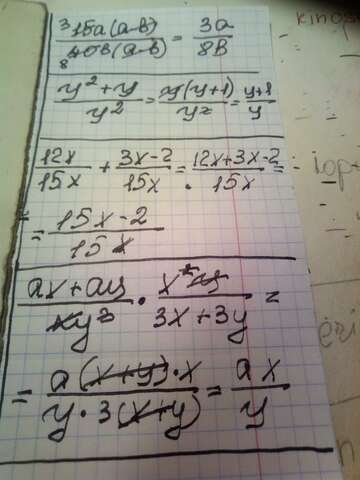 15a(a-b)/40b(a-b) = 3a/8b
3
8
y²+y/y² = y(y+1)/y² = y+1/y
12x/15x + 3x-2/15x = 12x+3x-2/15x =
= 15x-2/15x
ax+ay/xy² · x²y/3x+3y =
= a(x+y)·x/y·3(x+y) = ax/y